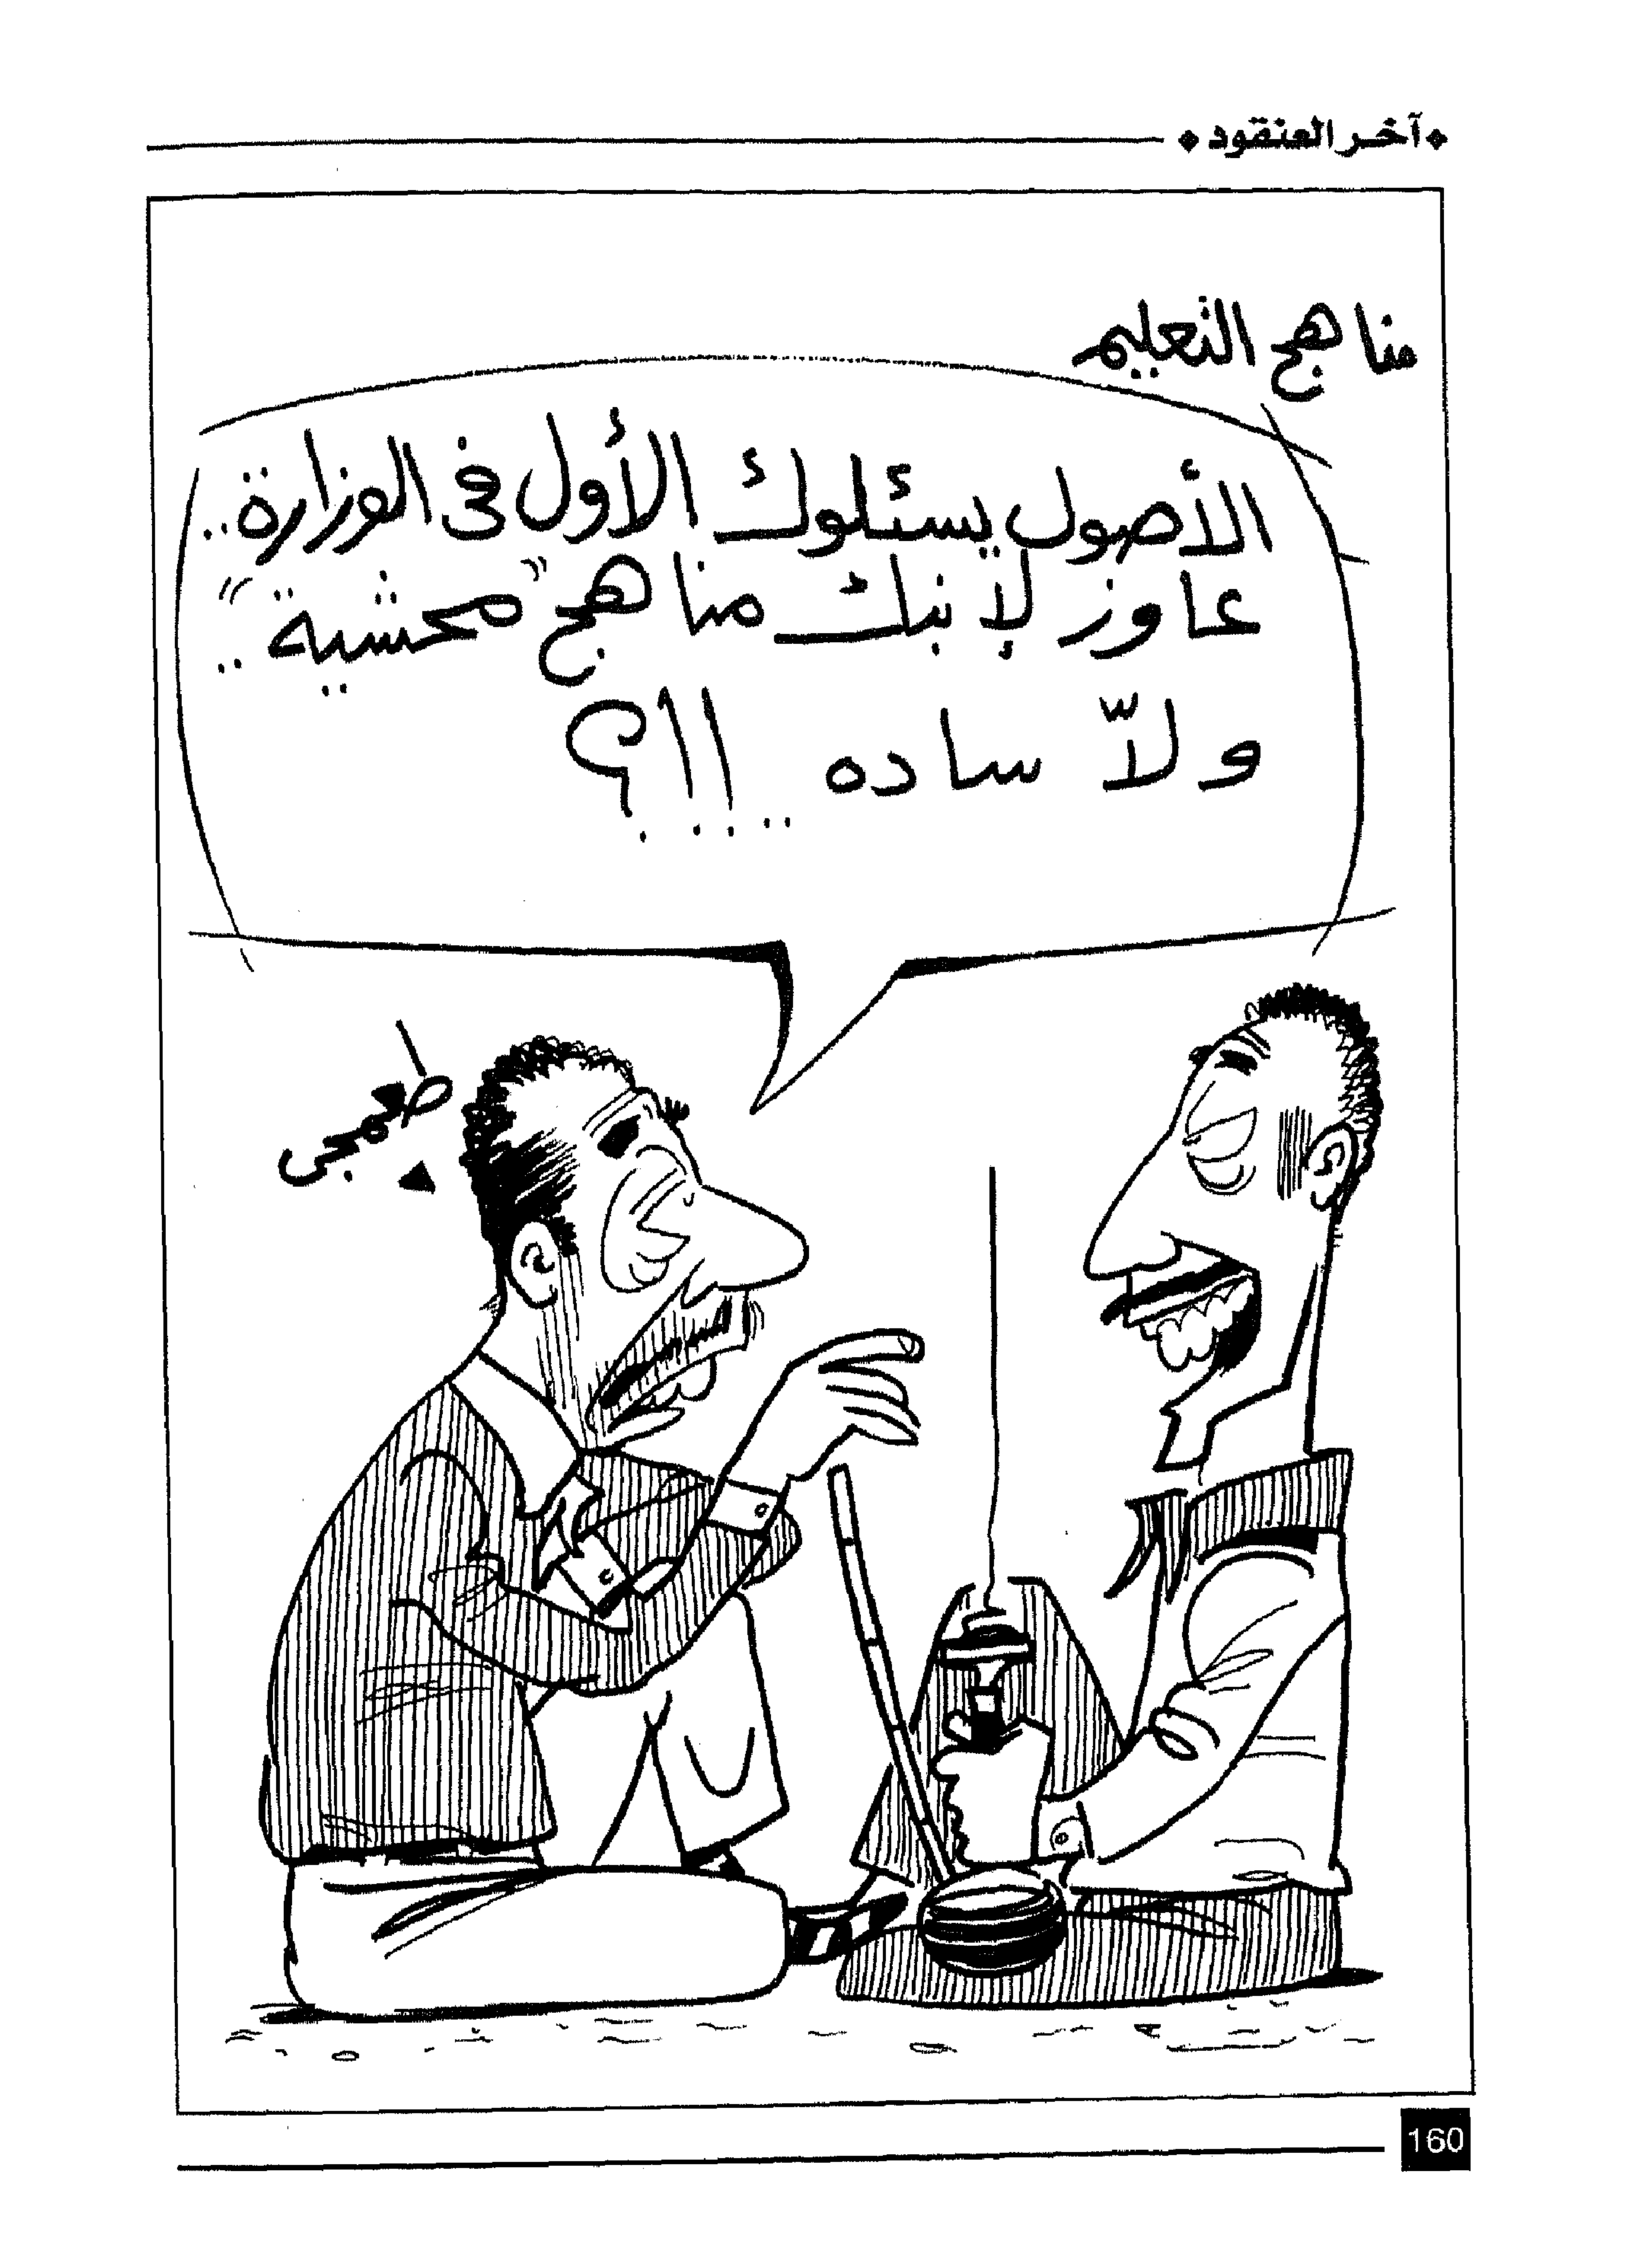 آخر العنقود
مناهج التعليم
الأصول يسئلوك الأول فى الوزارة..
عاوز لإبنك مناهج "محشية"..
ولاّ ساده ..!!؟
160